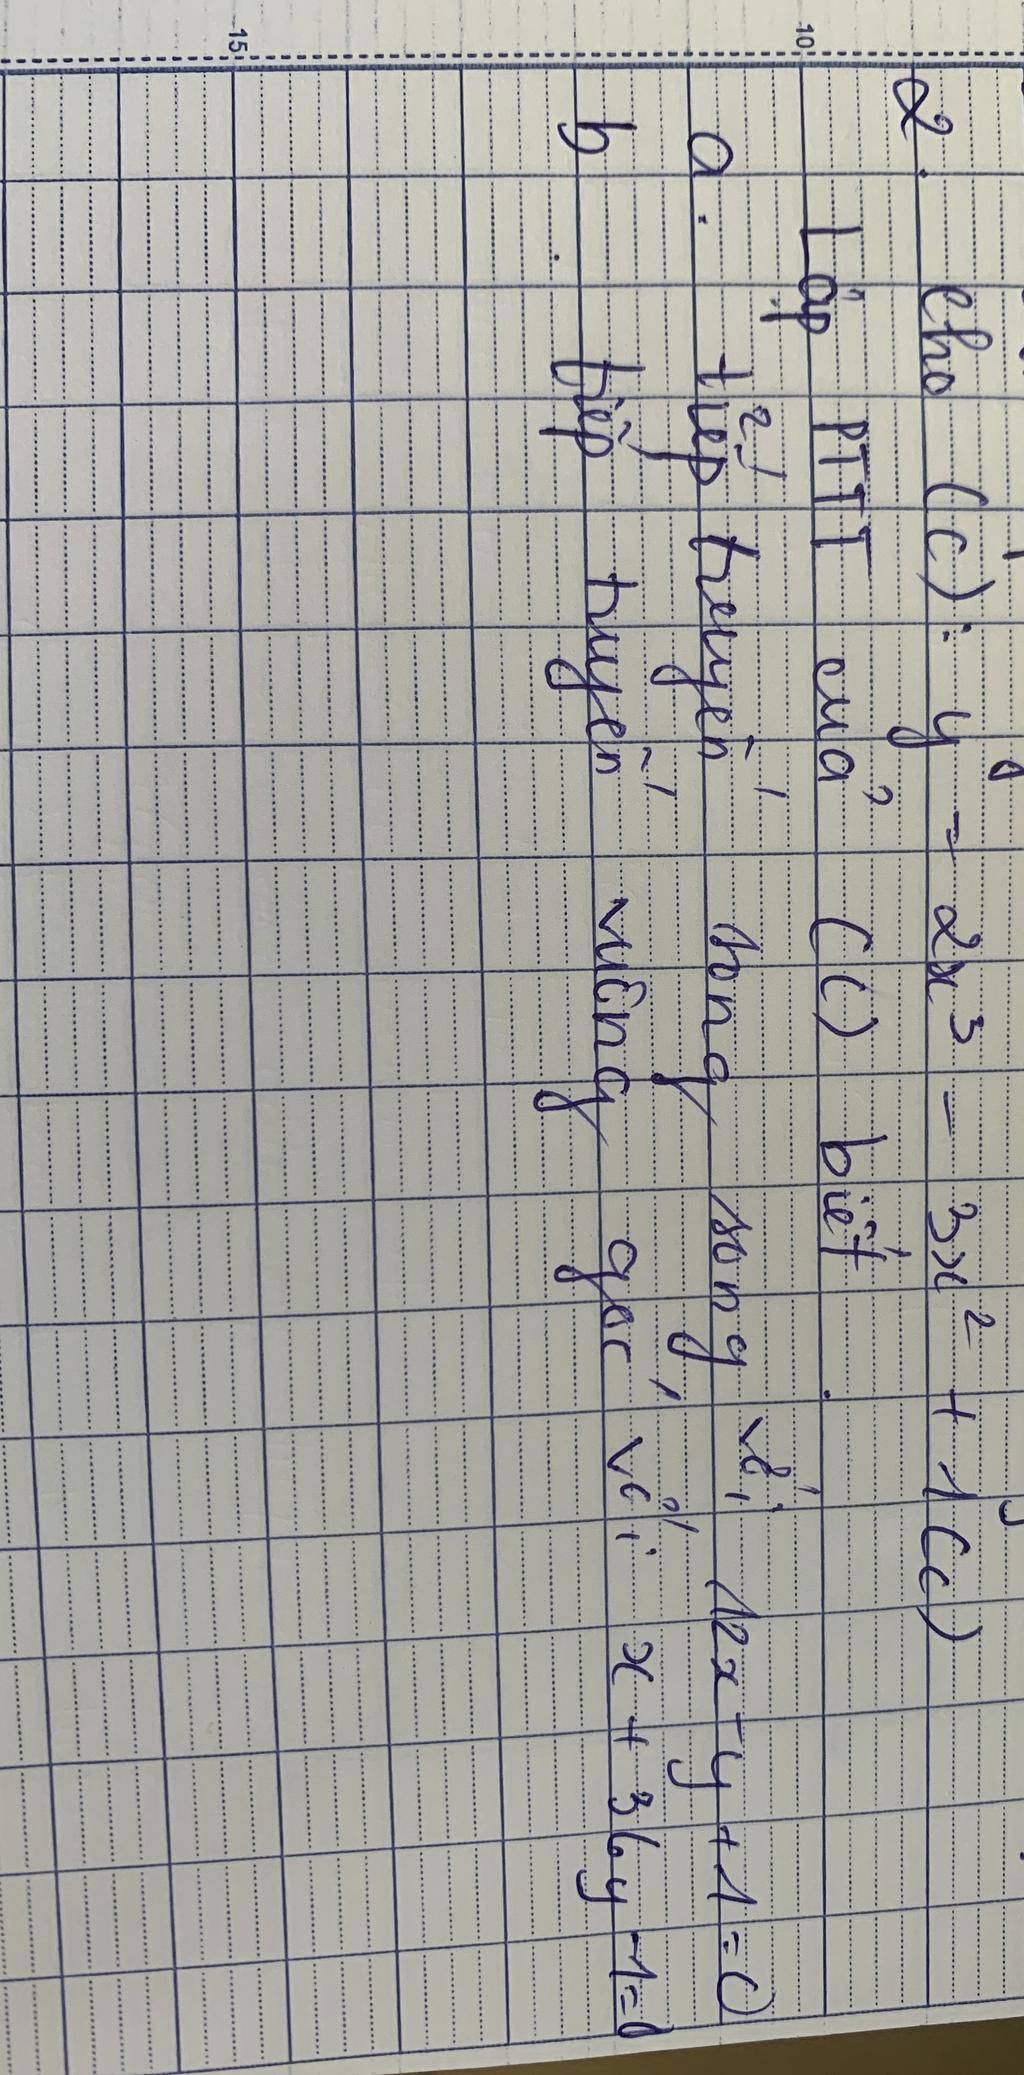 2. Cho (C): y = 2x³ - 3x² + 1 (C)
Lập PTTT của (C) biết
a. tiếp tuyến song song với 12x - y + 1 = 0
b. tiếp tuyến vuông góc với x + 36y - 1 = 0
10
15